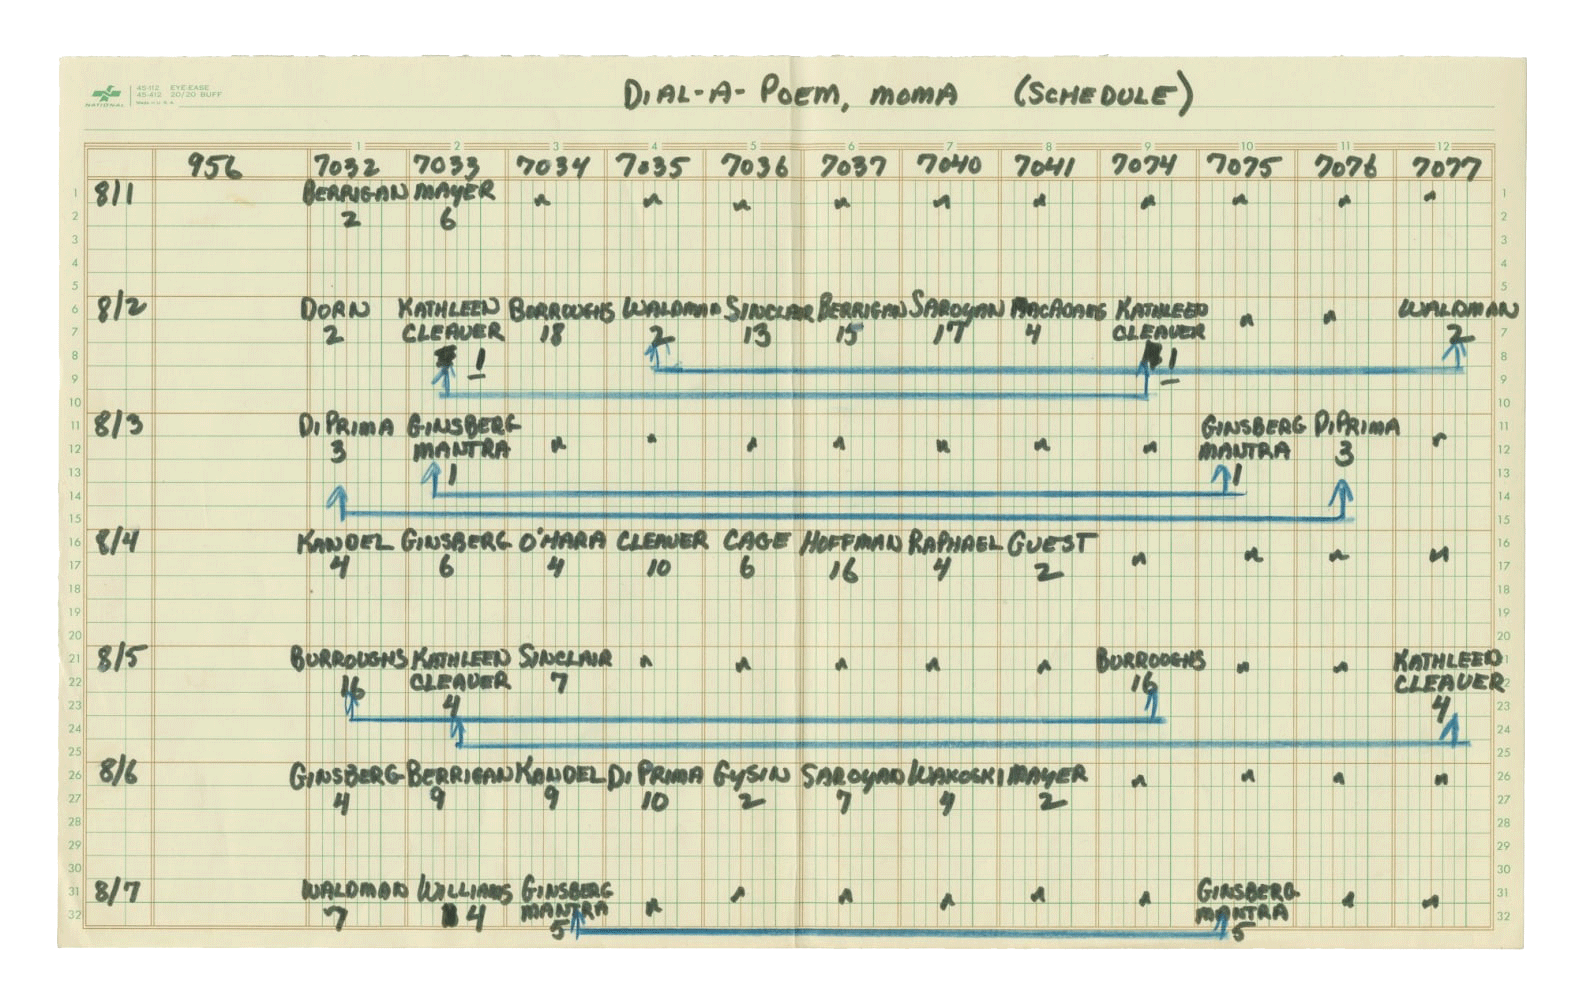 NATIONAL 45-112 EYE-EASE
45-412 20/20 BUFF
Made in U.S.A.
DIAL-A-POEM, MOMA (SCHEDULE)
1 2 3 4 5 6 7 8 9 10 11 12
956 7032 7033 7034 7035 7036 7037 7040 7041 7074 7075 7076 7077
1 8/1 BERRIGAN MAYER " " " " " " " " " " 1
2 2 6 2
3 3
4 4
5 5
6 8/2 DORN KATHLEEN BURROUGHS WALDMAN SINCLAIR BERRIGAN SAROYAN MACADAMS KATHLEEN " " WALDMAN 6
7 2 CLEAVER 18 2 13 15 17 4 CLEAVER 2 7
8 1 1 8
9 9
10 10
11 8/3 DIPRIMA GINSBERG GINSBERG DIPRIMA 11
12 3 MANTRA " " " " " " " MANTRA 3 " 12
13 1 1 13
14 14
15 15
16 8/4 KANDEL GINSBERG O'HARA CLEAVER CAGE HOFFMAN RAPHAEL GUEST " " " " 16
17 4 6 4 10 6 16 4 2 17
18 18
19 19
20 20
21 8/5 BURROUGHS KATHLEEN SINCLAIR " " " " " BURROUGHS " " KATHLEEN 21
22 16 CLEAVER 7 16 CLEAVER 22
23 4 4 23
24 24
25 25
26 8/6 GINSBERG BERRIGAN KANDEL DI PRIMA GYSIN SAROYAN WAKOSKI MAYER " " " " 26
27 4 9 9 10 2 7 4 2 27
28 28
29 29
30 30
31 8/7 WALDMAN WILLIAMS GINSBERG " " " " " " GINSBERG " " 31
32 7 4 MANTRA MANTRA 32
5 5